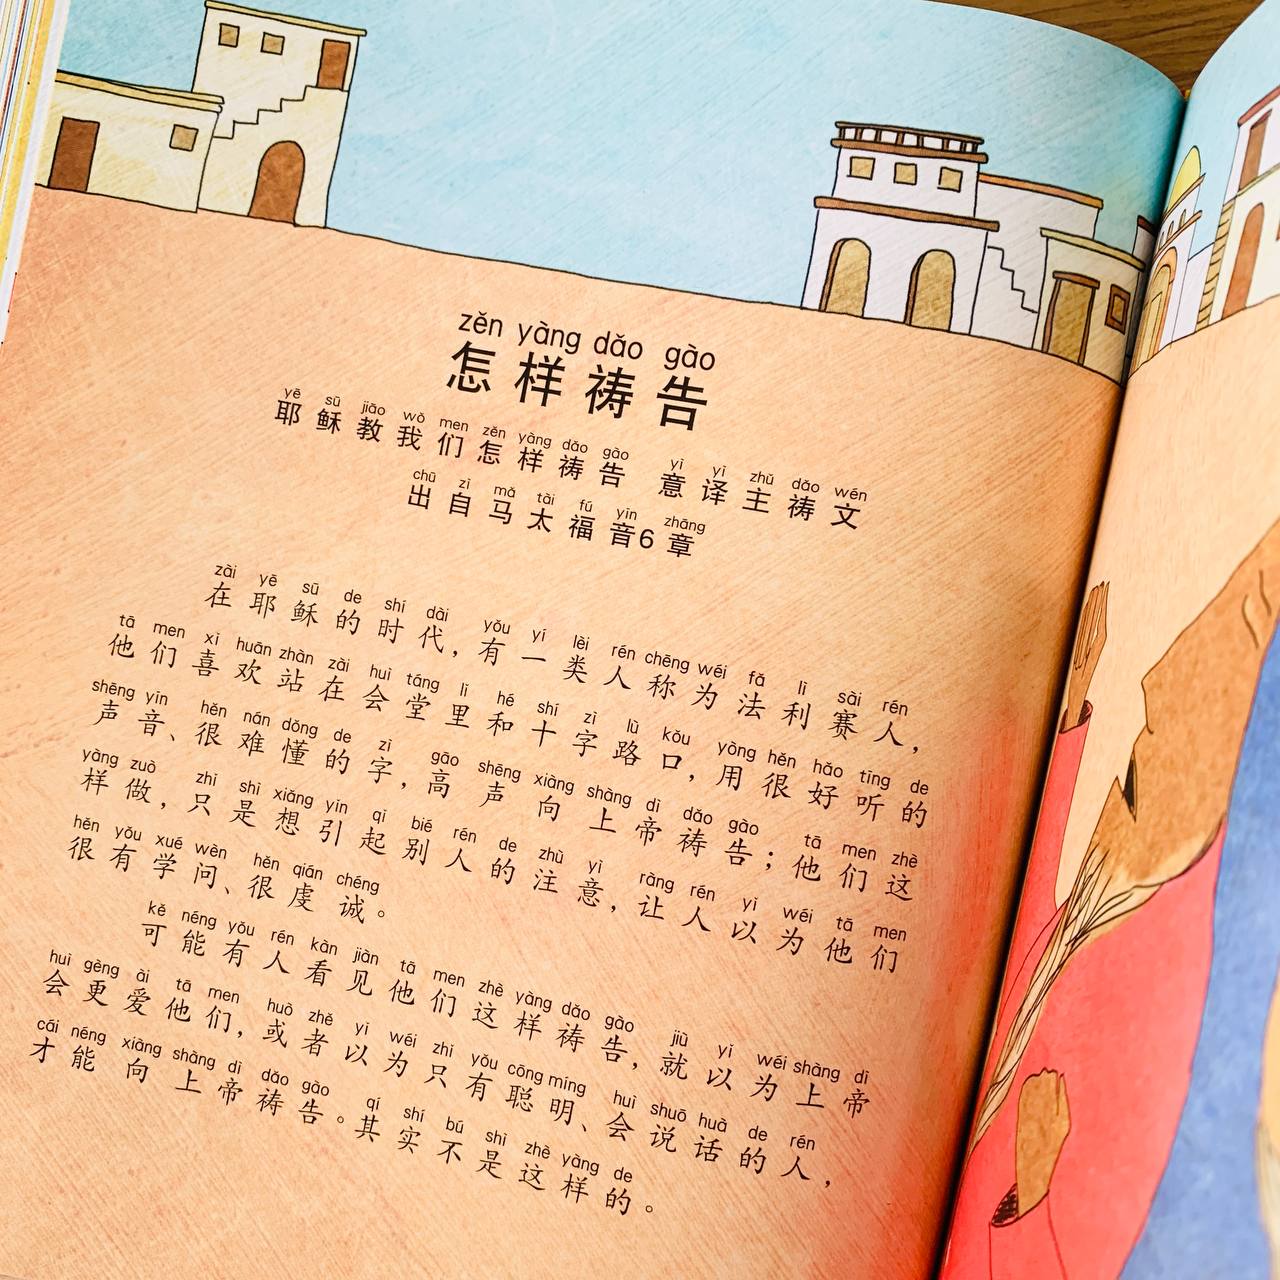 zěn yàng dǎo gào
怎样祷告
yē sū jiāo wǒ men zěn yàng dǎo gào yì yì zhǔ dǎo wén
耶稣教我们怎样祷告 意译主祷文
chū zì mǎ tài fú yīn zhāng
出自马太福音6章
zài yē sū de shí dài yǒu yí lèi rén chēng wéi fǎ lì sài rén
在耶稣的时代,有一类人称为法利赛人,
tā men xǐ huān zhàn zài huì táng lǐ hé shí zì lù kǒu yòng hěn hǎo tīng de
他们喜欢站在会堂里和十字路口,用很好听的
shēng yīn hěn nán dǒng de zì gāo shēng xiàng shàng dì dǎo gào tā men zhè
声音、很难懂的字,高声向上帝祷告;他们这
yàng zuò zhǐ shì xiǎng yǐn qǐ bié rén de zhù yì ràng rén yǐ wéi tā men
样做,只是想引起别人的注意,让人以为他们
hěn yǒu xué wèn hěn qián chéng
很有学问、很虔诚。
kě néng yǒu rén kàn jiàn tā men zhè yàng dǎo gào jiù yǐ wéi shàng dì
可能有人看见他们这样祷告,就以为上帝
huì gèng ài tā men huò zhě yǐ wéi zhǐ yǒu cōng míng huì shuō huà de rén
会更爱他们,或者以为只有聪明、会说话的人,
cái néng xiàng shàng dì dǎo gào qí shí bú shì zhè yàng de
才能向上帝祷告。其实不是这样的。